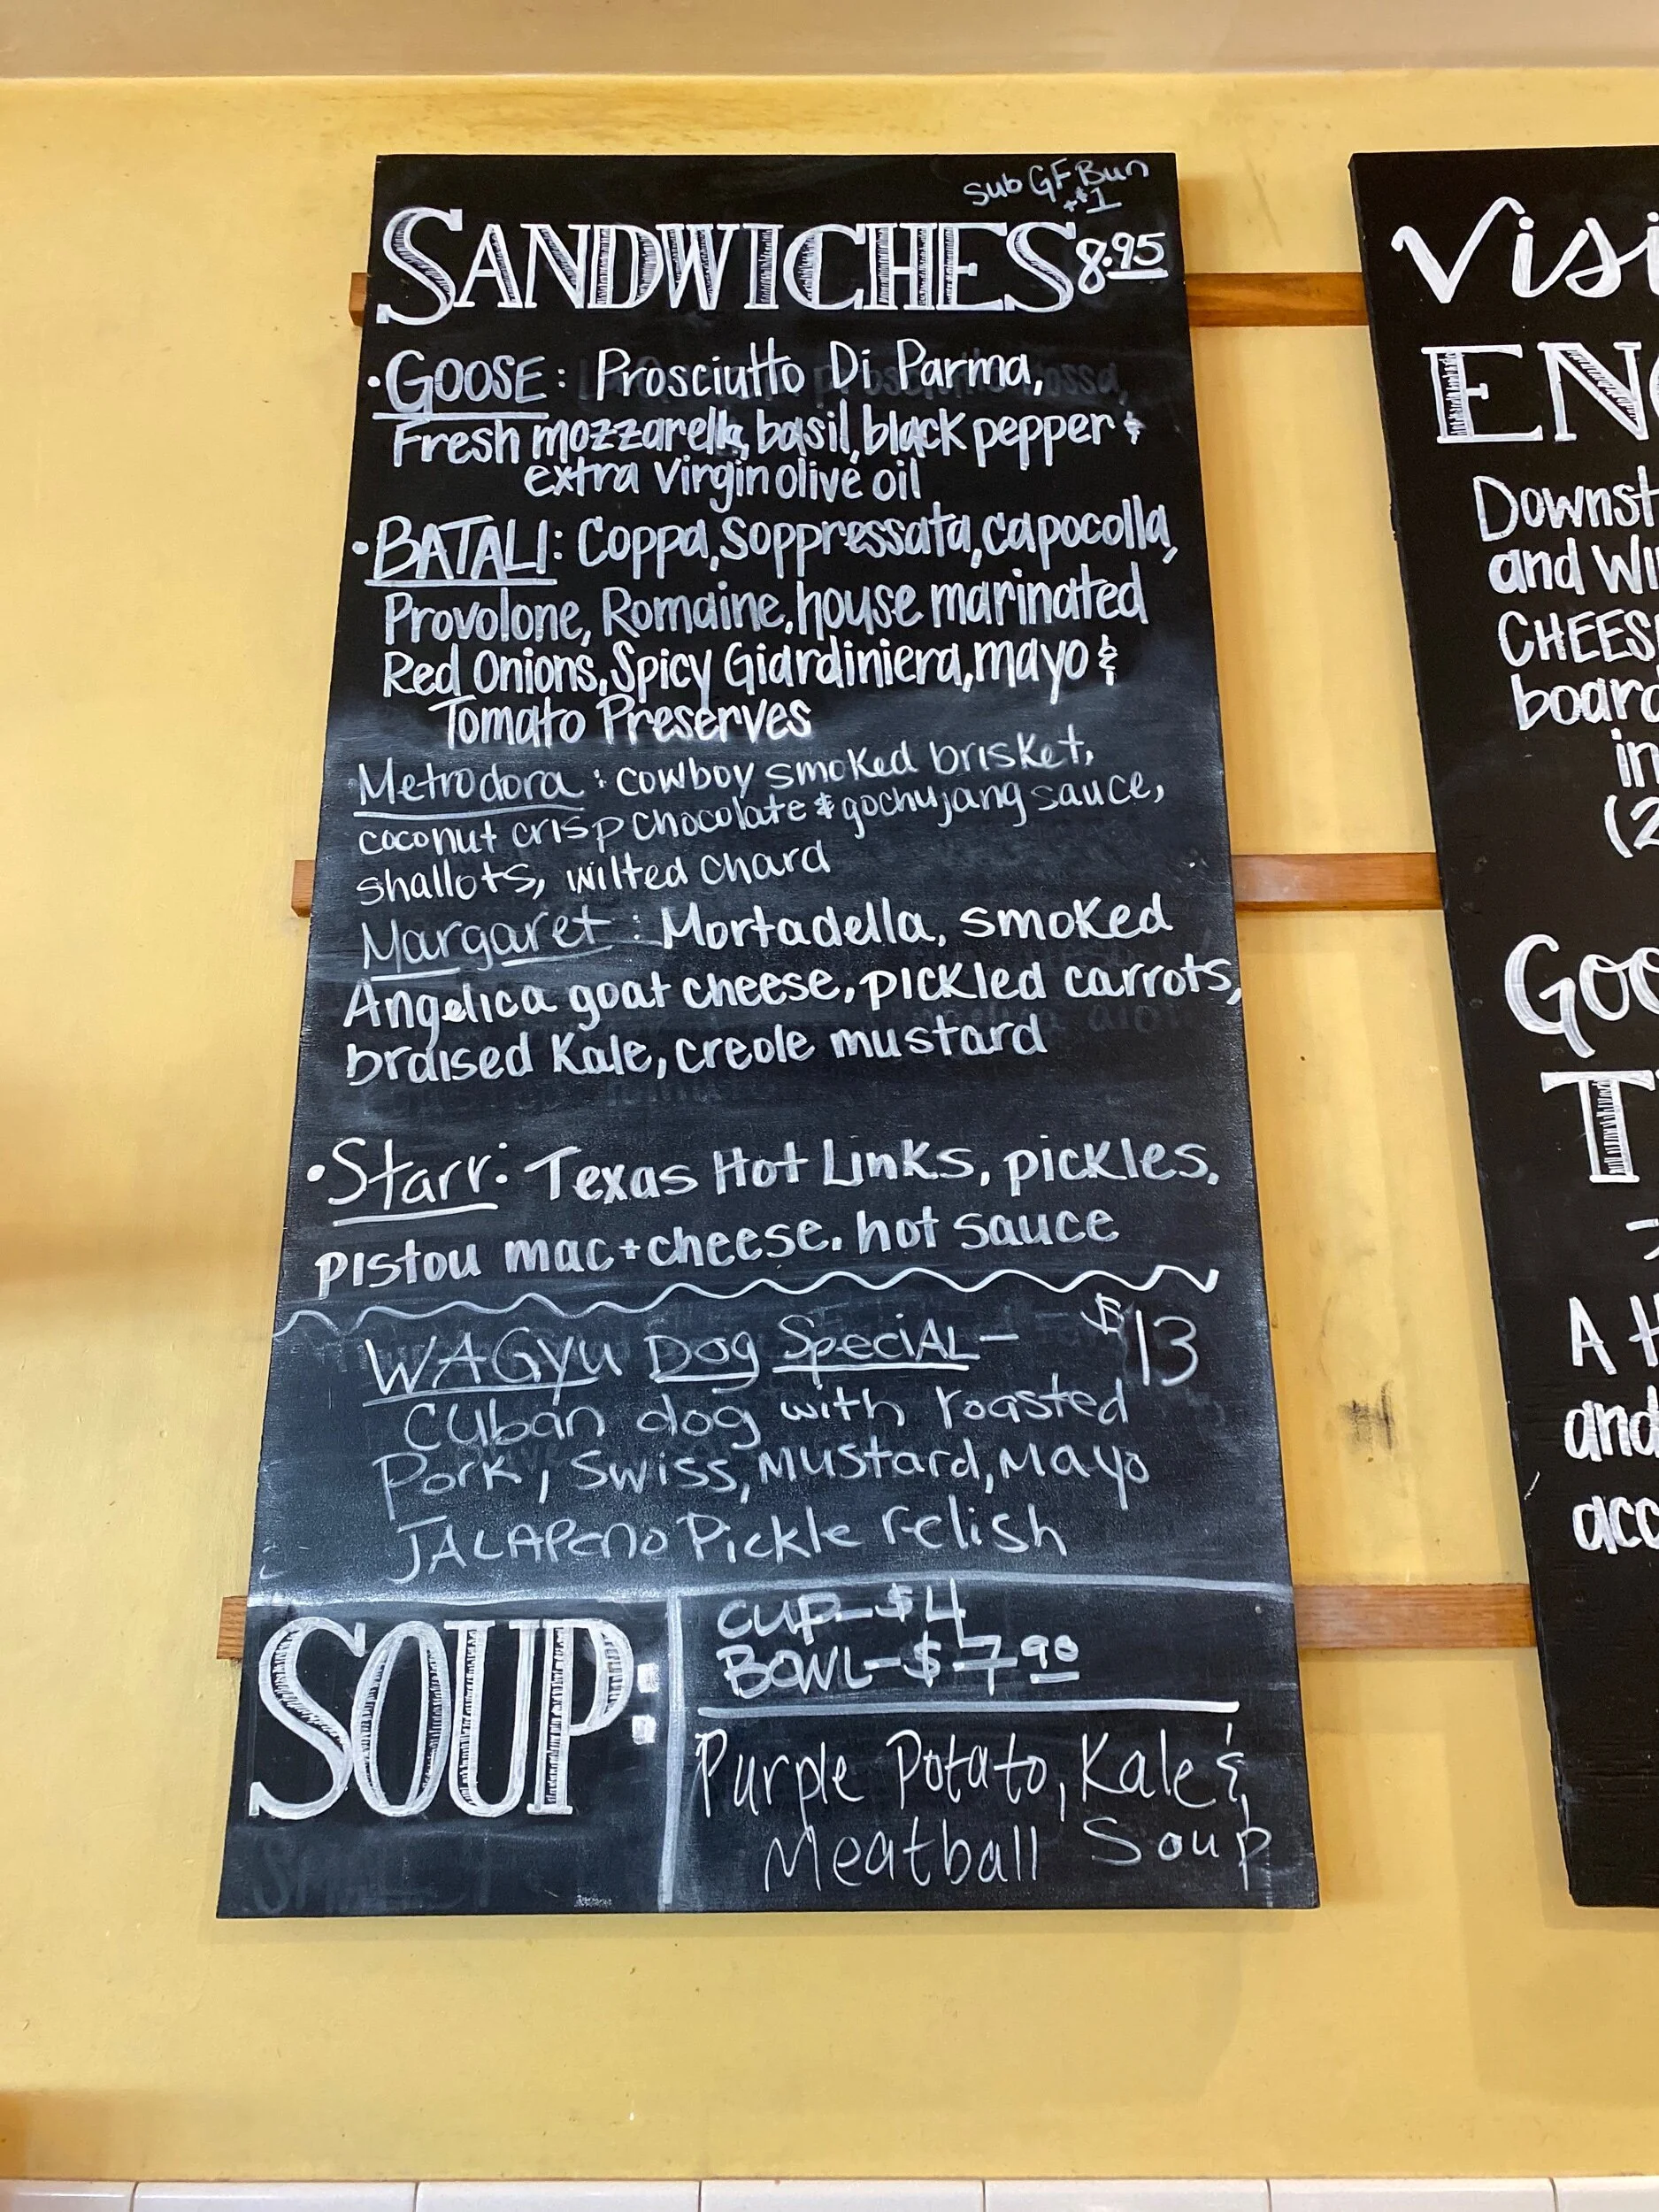 Sub GF Bun
+$1
SANDWICHES 8.95
• GOOSE: Prosciutto Di Parma,
Fresh mozzarella, basil, black pepper &
extra virgin olive oil
• BATALI: Coppa, Soppressata, capocolla,
Provolone, Romaine, house marinated
Red Onions, Spicy Giardiniera, mayo &
Tomato Preserves
Metrodora: cowboy smoked brisket,
coconut crisp chocolate & gochujang sauce,
shallots, wilted chard
Margaret: Mortadella, smoked
Angelica goat cheese, pickled carrots,
braised Kale, creole mustard
• Starr: Texas Hot Links, pickles,
pistou mac+cheese, hot sauce
WAGyu Dog SpeciAL- $13
Cuban dog with roasted
Pork, Swiss, Mustard, Mayo
JALAPeno Pickle relish
SOUP:
CUP-$4
BOWL-$7.90
Purple Potato, Kale &
Meatball Soup
Visi
ENG
Downst
and Wi
CHEESE
board
in
(2
Goo
T
A H
and
acc